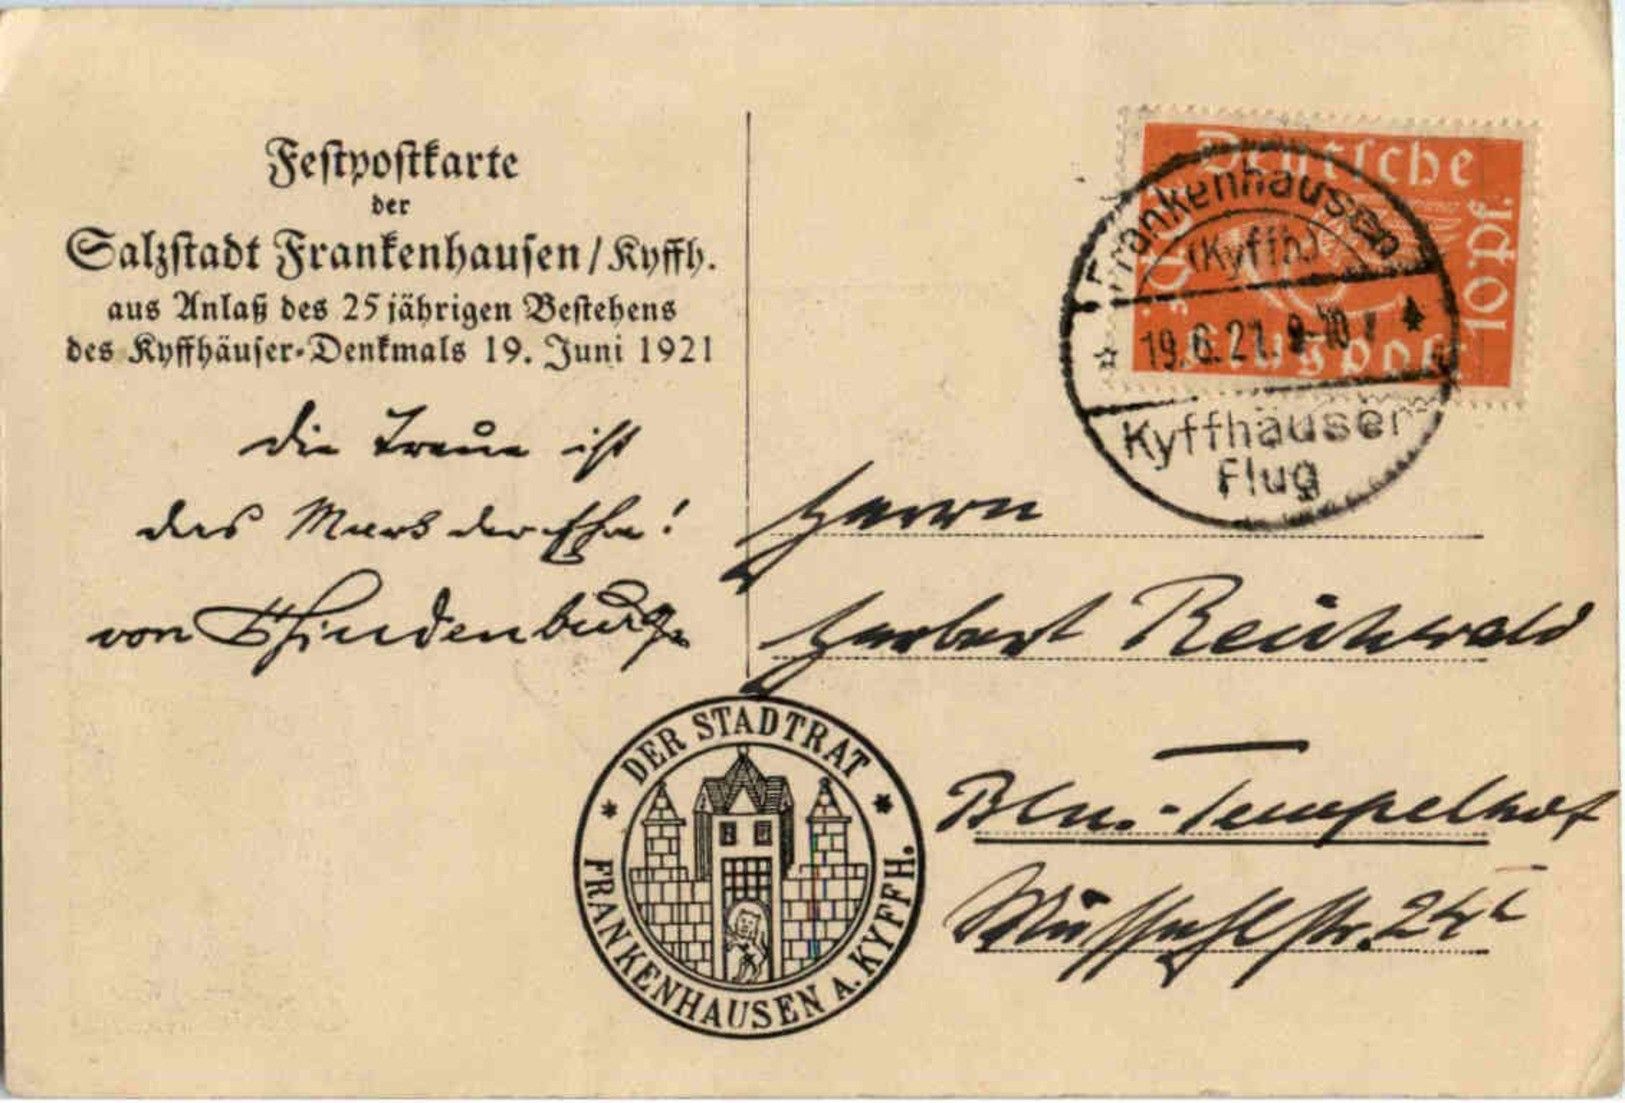 Festpostkarte
der
Salzstadt Frankenhausen / Kyffh.
aus Anlaß des 25 jährigen Bestehens
des Kyffhäuser-Denkmals 19. Juni 1921
Die Treue ist
das Mark der Ehre!
von Hindenburg
Deutsche
10 Pf.
Flugpost
Frankenhausen
(Kyffh)
19.6.21. 9-10 V
Kyffhäuser
Flug
Herrn
Herbert
Bln.-Tempelhof
DER STADTRAT
FRANKENHAUSEN A. KYFFH.